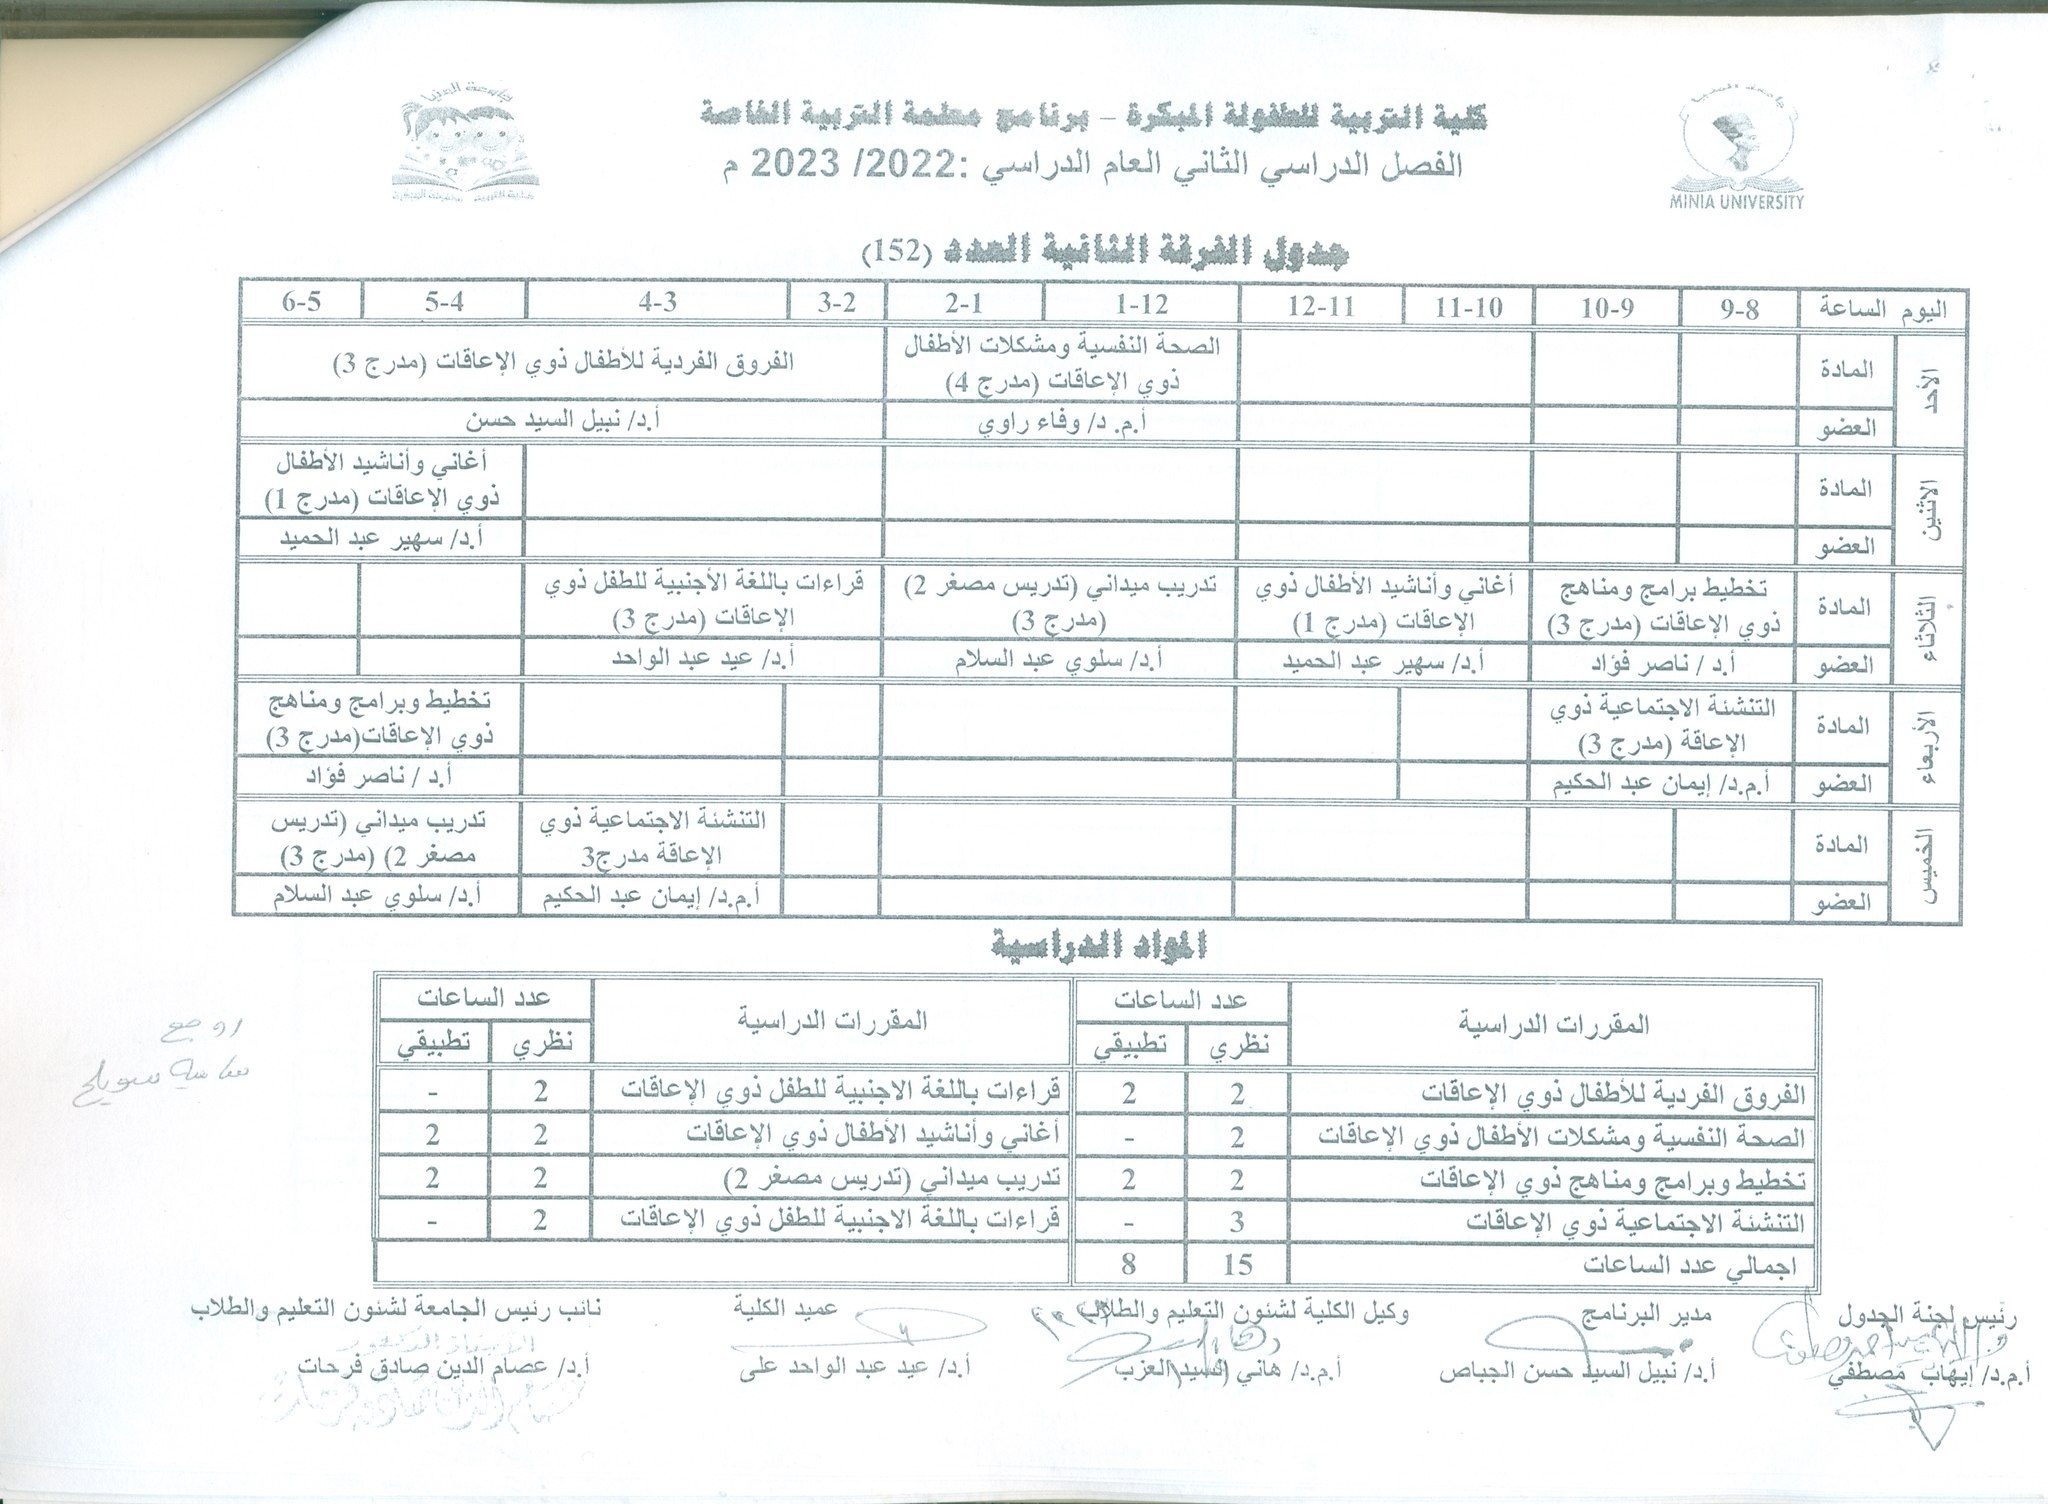 جامعة المنيا
MINIA UNIVERSITY
كلية التربية للطفولة المبكرة – برنامج معلمة التربية الخاصة
الفصل الدراسي الثاني العام الدراسي :2022/ 2023 م
جامعة المنيا
كلية التربية للطفولة المبكرة
جدول الفرقة الثانية العدد (152)
اليوم الساعة 9-8 10-9 11-10 12-11 1-12 2-1 3-2 4-3 5-4 6-5
الأحد
المادة
الصحة النفسية ومشكلات الأطفال
ذوي الإعاقات (مدرج 4)
الفروق الفردية للأطفال ذوي الإعاقات (مدرج 3)
العضو أ.م. د/ وفاء راوي أ.د/ نبيل السيد حسن
الاثنين
المادة
أغاني وأناشيد الأطفال
ذوي الإعاقات (مدرج 1)
العضو أ.د/ سهير عبد الحميد
الثلاثاء
المادة
تخطيط برامج ومناهج
ذوي الإعاقات (مدرج 3)
أغاني وأناشيد الأطفال ذوي
الإعاقات (مدرج 1)
تدريب ميداني (تدريس مصغر 2)
(مدرج 3)
قراءات باللغة الأجنبية للطفل ذوي
الإعاقات (مدرج 3)
العضو أ.د / ناصر فؤاد أ.د/ سهير عبد الحميد أ.د/ سلوي عبد السلام أ.د/ عيد عبد الواحد
الأربعاء
المادة
التنشئة الاجتماعية ذوي
الإعاقة (مدرج 3)
تخطيط وبرامج ومناهج
ذوي الإعاقات(مدرج 3)
العضو أ.م.د/ إيمان عبد الحكيم أ.د / ناصر فؤاد
الخميس
المادة
التنشئة الاجتماعية ذوي
الإعاقة مدرج3
تدريب ميداني (تدريس
مصغر 2) (مدرج 3)
العضو أ.م.د/ إيمان عبد الحكيم أ.د/ سلوي عبد السلام
المواد الدراسية
المقررات الدراسية عدد الساعات المقررات الدراسية عدد الساعات
نظري تطبيقي نظري تطبيقي
الفروق الفردية للأطفال ذوي الإعاقات 2 2 قراءات باللغة الاجنبية للطفل ذوي الإعاقات 2 -
الصحة النفسية ومشكلات الأطفال ذوي الإعاقات 2 - أغاني وأناشيد الأطفال ذوي الإعاقات 2 2
تخطيط وبرامج ومناهج ذوي الإعاقات 2 2 تدريب ميداني (تدريس مصغر 2) 2 2
التنشئة الاجتماعية ذوي الإعاقات 3 - قراءات باللغة الاجنبية للطفل ذوي الإعاقات 2 -
اجمالي عدد الساعات 15 8
رئيس لجنة الجدول مدير البرنامج وكيل الكلية لشئون التعليم والطلاب عميد الكلية نائب رئيس الجامعة لشئون التعليم والطلاب
أ.م.د/ إيهاب مصطفي أ.د/ نبيل السيد حسن الجباص أ.م.د/ هاني السيد العزب أ.د/ عيد عبد الواحد على أ.د/ عصام الدين صادق فرحات